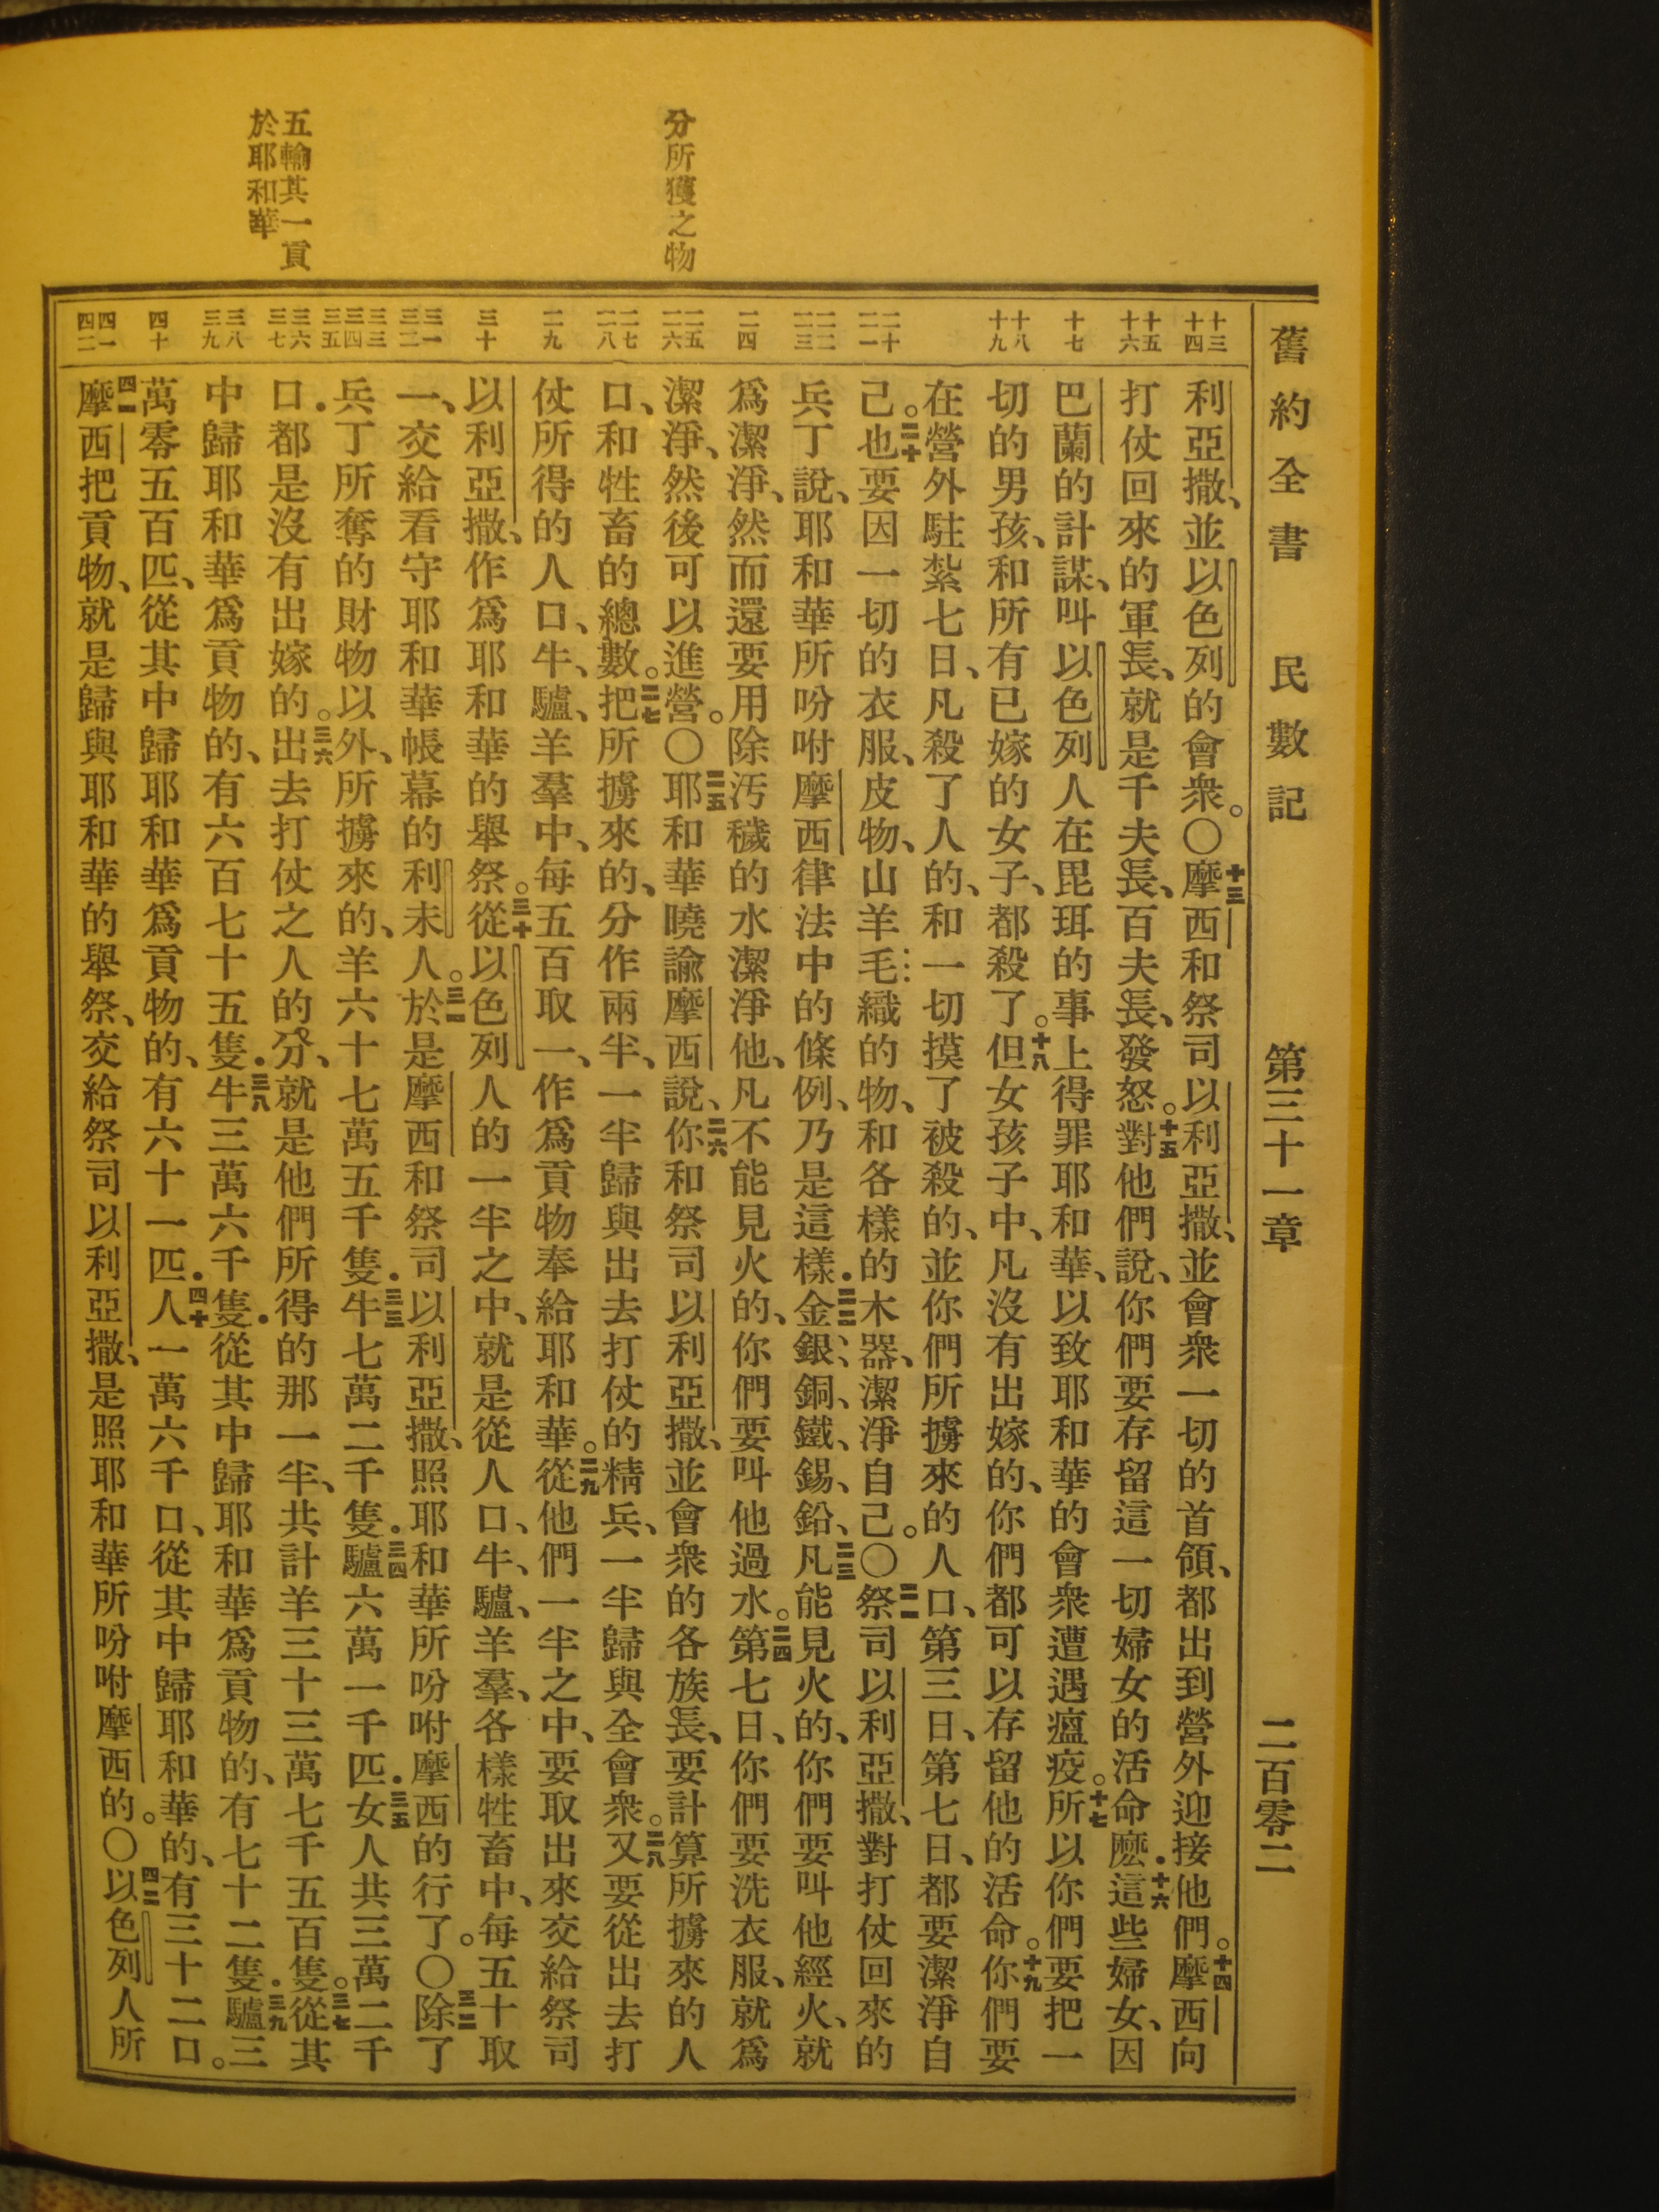 舊約全書　民數記　第三十一章　二百零二
十三
十四
十五
十六
十七
十八
十九
二十
二一
二二
二三
二四
二五
二六
二七
二八
二九
三十
三一
三二
三三
三四
三五
三六
三七
三八
三九
四十
四一
四二
分所獲之物
五輸其一貢
於耶和華
利亞撒、並以色列的會衆。〇十三摩西和祭司以利亞撒、並會衆一切的首領、都出到營外迎接他們。十四摩西向
打仗回來的軍長、就是千夫長、百夫長、發怒。十五對他們說、你們要存留這一切婦女的活命麽．十六這些婦女、因
巴蘭的計謀、叫以色列人在毘珥的事上得罪耶和華、以致耶和華的會衆遭遇瘟疫。十七所以你們要把一
切的男孩、和所有已嫁的女子、都殺了。十八但女孩子中、凡沒有出嫁的、你們都可以存留他的活命。十九你們要
在營外駐紮七日、凡殺了人的、和一切摸了被殺的、並你們所擄來的人口、第三日、第七日、都要潔淨自
己。二十也要因一切的衣服、皮物、山羊毛織的物、和各樣的木器、潔淨自己。〇二一祭司以利亞撒、對打仗回來的
兵丁說、耶和華所吩咐摩西律法中的條例、乃是這樣．二二金、銀、銅、鐵、錫、鉛、二三凡能見火的、你們要叫他經火、就
爲潔淨、然而還要用除汚穢的水潔淨他、凡不能見火的、你們要叫他過水。二四第七日、你們要洗衣服、就爲
潔淨、然後可以進營。〇二五耶和華曉諭摩西說、二六你和祭司以利亞撒、並會衆的各族長、要計算所擄來的人
口、和牲畜的總數。二七把所擄來的、分作兩半、一半歸與出去打仗的精兵、一半歸與全會衆。二八又要從出去打
仗所得的人口、牛、驢、羊羣中、每五百取一、作爲貢物奉給耶和華。二九從他們一半之中、要取出來交給祭司
以利亞撒、作爲耶和華的舉祭。三十從以色列人的一半之中、就是從人口、牛、驢、羊羣、各樣牲畜中、每五十取
一、交給看守耶和華帳幕的利未人。三一於是摩西和祭司以利亞撒、照耶和華所吩咐摩西的行了。〇三二除了
兵丁所奪的財物以外、所擄來的、羊六十七萬五千隻．三三牛七萬二千隻．三四驢六萬一千匹．三五女人共三萬二千
口．都是沒有出嫁的。三六出去打仗之人的分、就是他們所得的那一半、共計羊三十三萬七千五百隻。三七從其
中歸耶和華爲貢物的、有六百七十五隻．三八牛三萬六千隻．從其中歸耶和華爲貢物的、有七十二隻．三九驢三
萬零五百匹、從其中歸耶和華爲貢物的、有六十一匹．四十人一萬六千口、從其中歸耶和華的、有三十二口。
四一摩西把貢物、就是歸與耶和華的舉祭、交給祭司以利亞撒、是照耶和華所吩咐摩西的。〇四二以色列人所